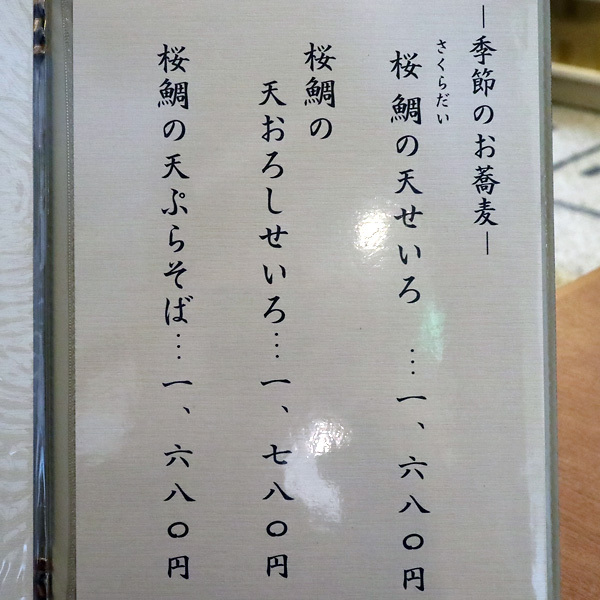 ―季節のお蕎麦―
さくらだい
桜鯛の天せいろ …一、六八〇円
桜鯛の
天おろしせいろ…一、七八〇円
桜鯛の天ぷらそば…一、六八〇円